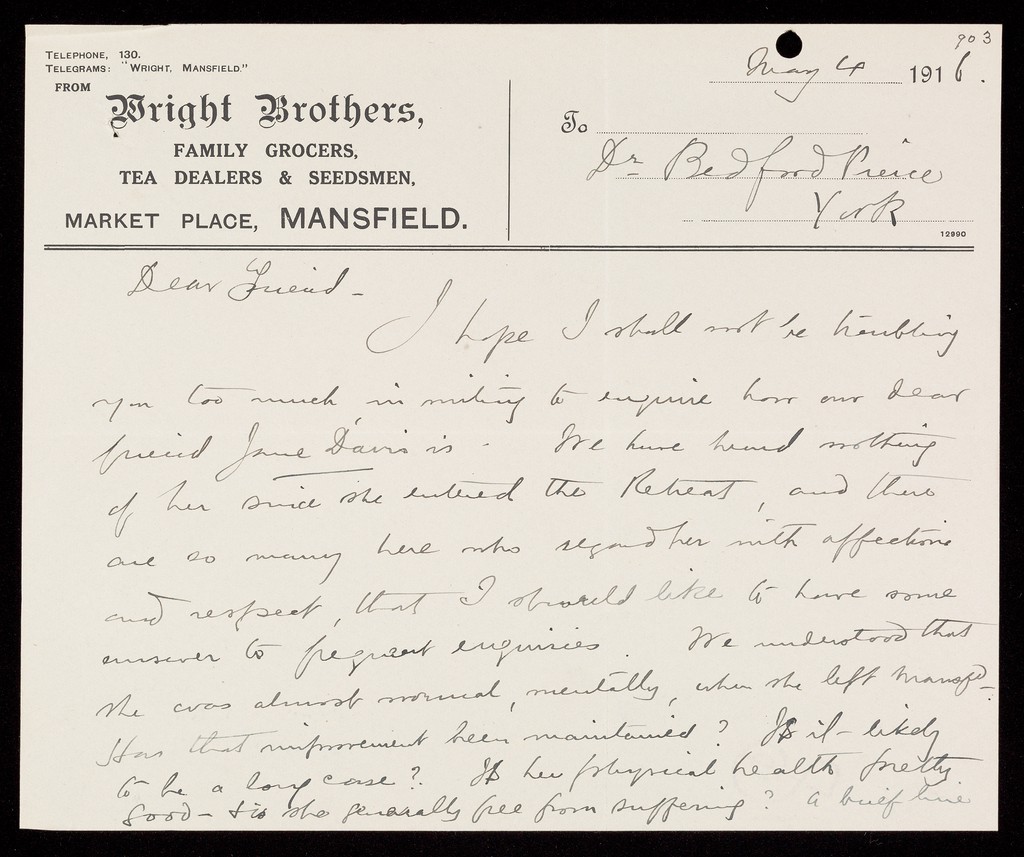 903
TELEPHONE, 130.
TELEGRAMS: "WRIGHT, MANSFIELD."
FROM
Wright Brothers,
FAMILY GROCERS,
TEA DEALERS & SEEDSMEN,
MARKET PLACE, MANSFIELD.
May 4 1916.
To
Dr Bedford Pierce
York
12990
Dear Friend -
I hope I shall not be troubling
you too much in writing to enquire how our dear
friend Jane Davis is. We have heard nothing
of her since she entered the Retreat, and there
are so many here who regard her with affection
and respect, that I should like to have some
answer to frequent enquiries. We understood that
she was almost normal, mentally, when she left Mansfd-
Has that improvement been maintained? Is it likely
to be a long case? Is her physical health pretty
good - & is she generally free from suffering? A brief line